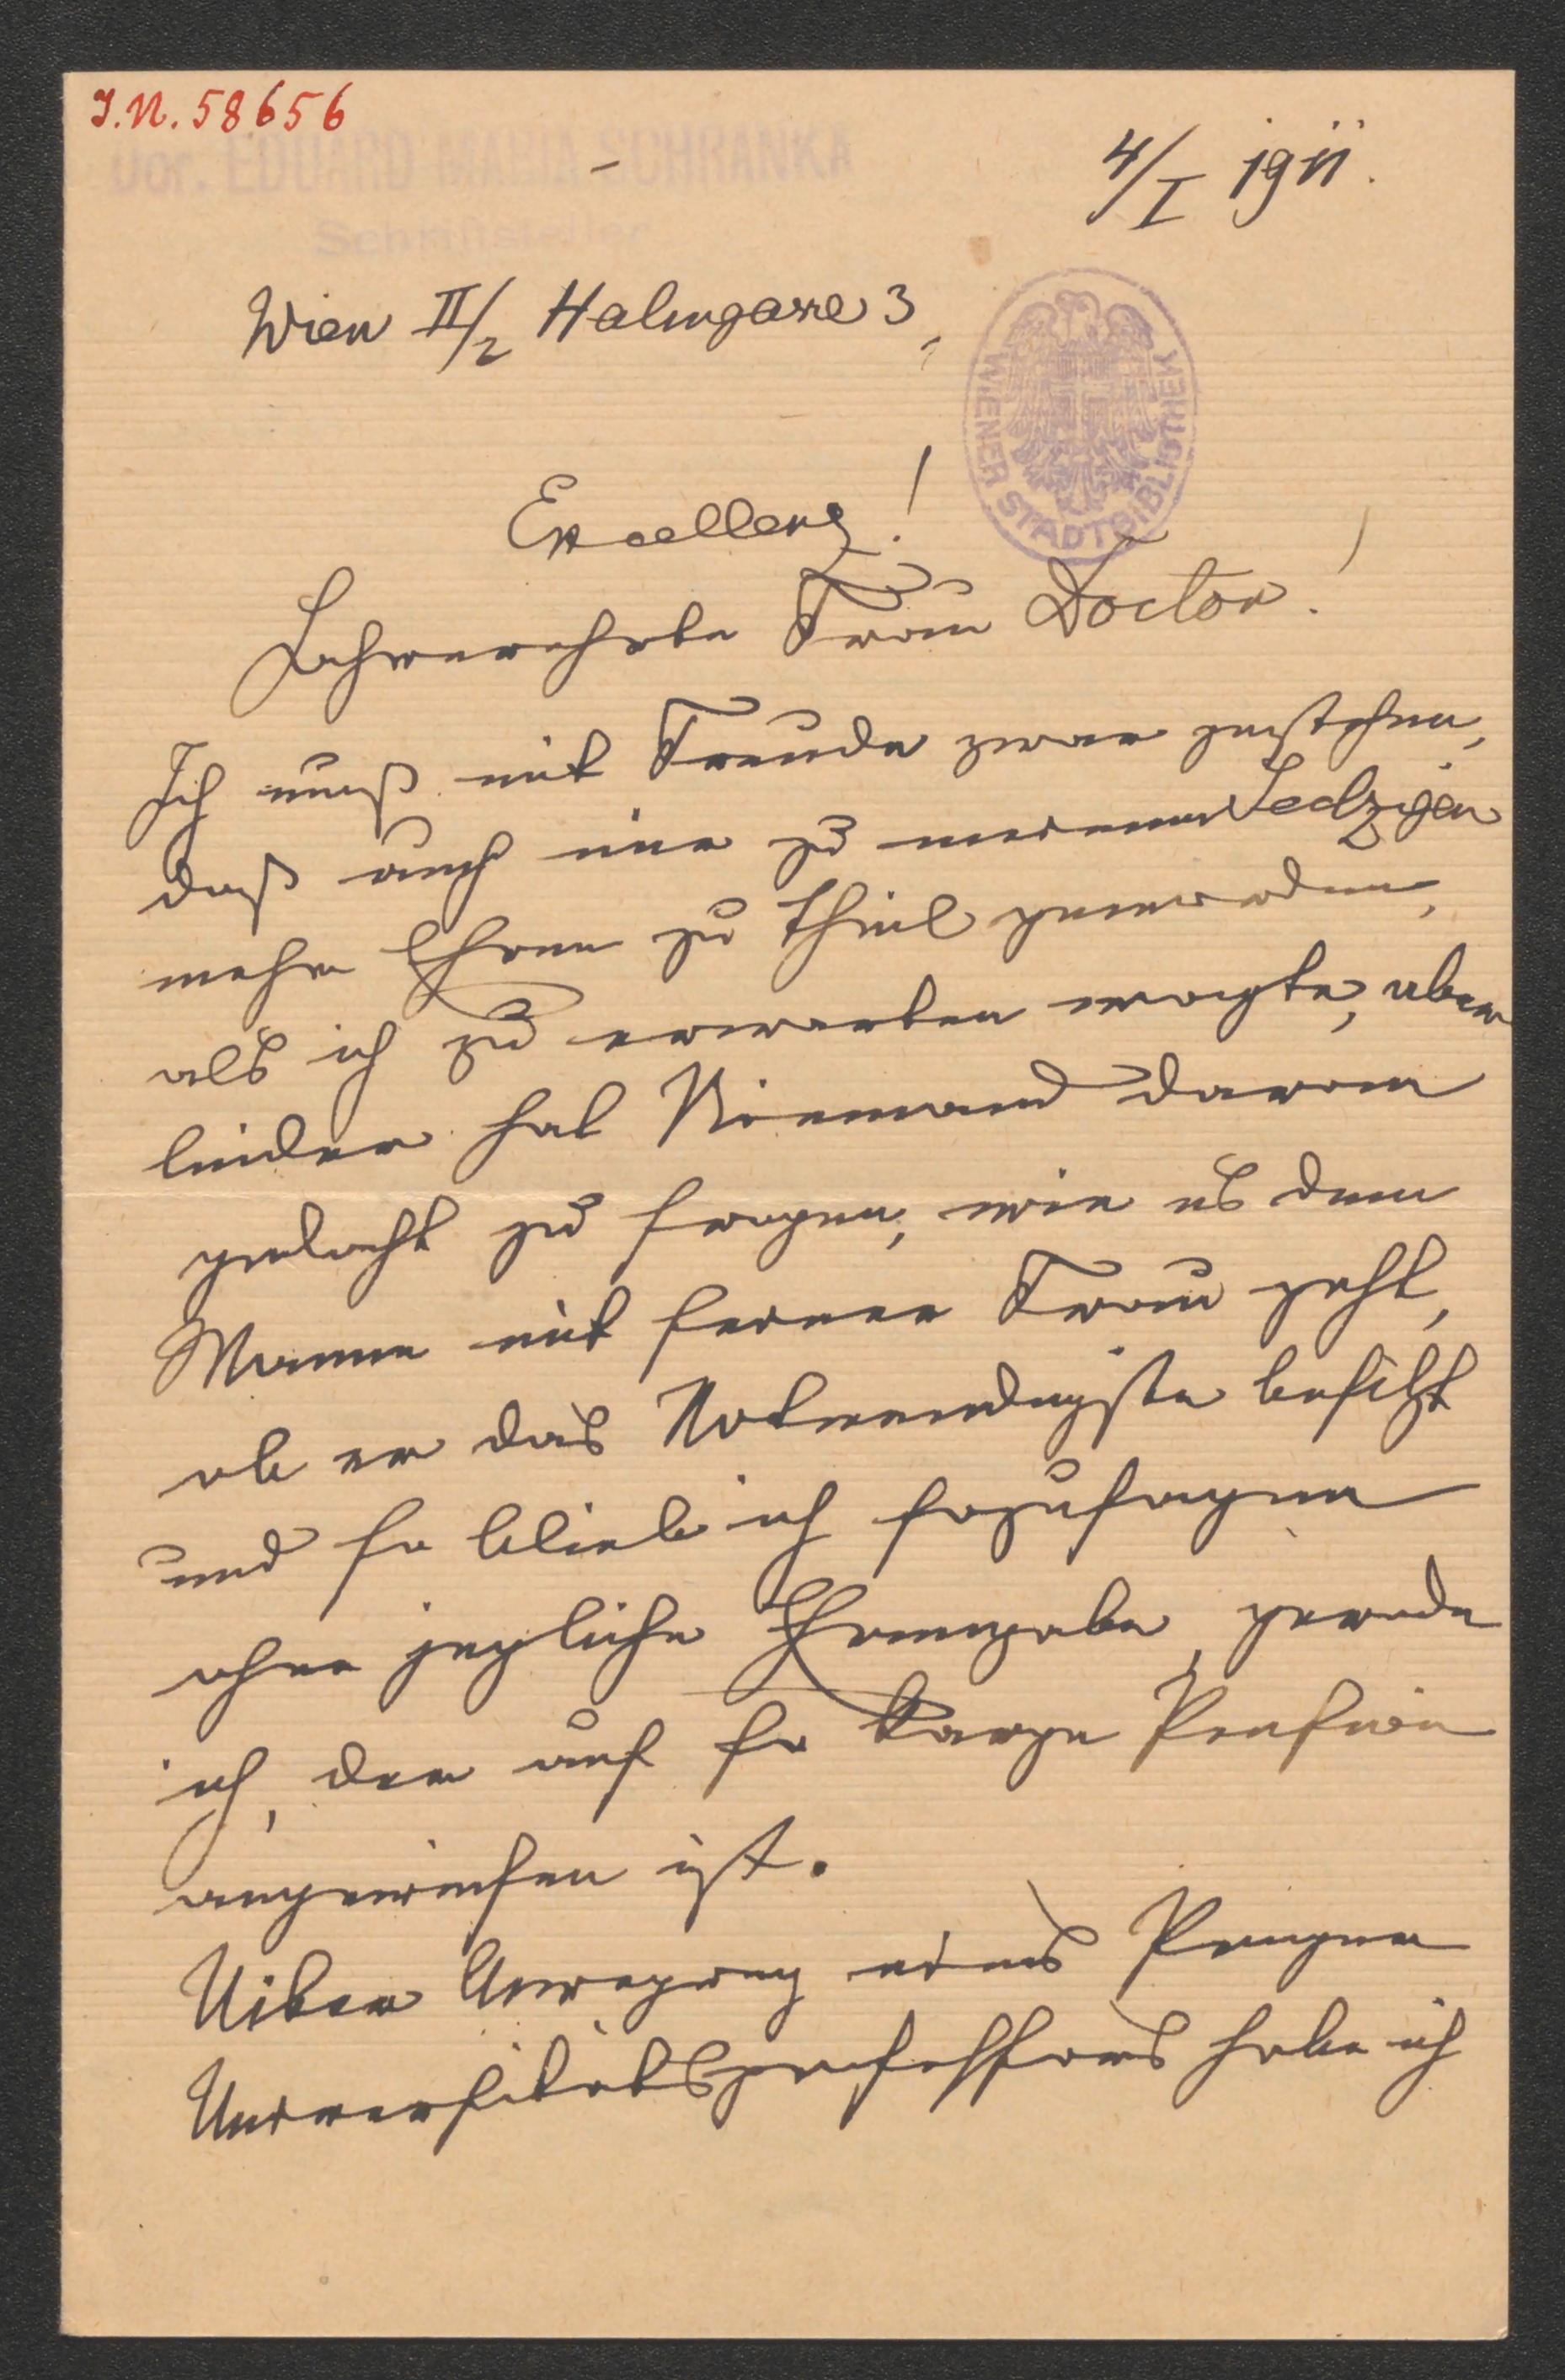 J.N. 58656
Dor. EDUARD MARIA SCHRANKA
Schriftsteller
4/I 1911.
Wien II/2 Halmgasse 3,
WIENER STADTBIBLIOTHEK
Excellenz!
Hochverehrte Frau Doctor!
Ich muß mit Freude zwar gestehen,
daß auch mir zu meinem Sechziger
mehr Ehren zu theil geworden,
als ich zu erwarten wagte, aber
leider hat Niemand daran
gedacht zu fragen, wie es dem
Manne mit seiner Frau geht,
ob er das Notwendigste besitzt
und so blieb ich sozusagen
ohne jegliche Ehrengabe, gerade
ich, der auf so karge Pension
angewiesen ist.
Uiber Anregung eines Prager
Universitätsprofessors habe ich